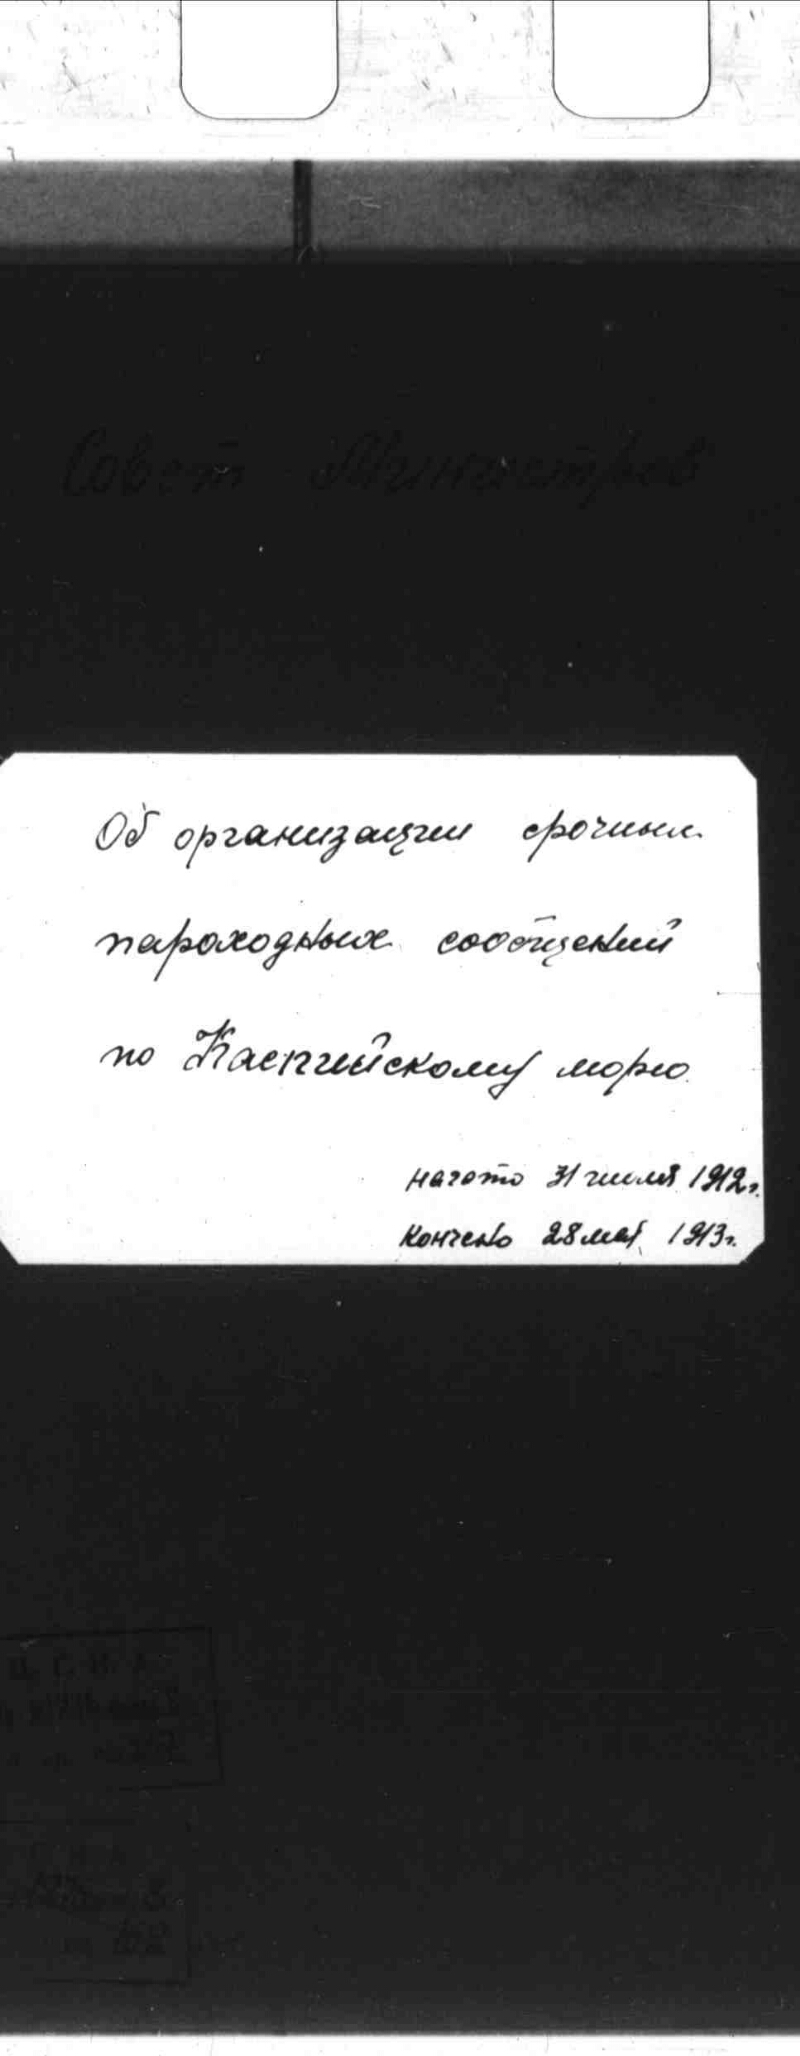 Совет Министров
Об организации срочных
пароходных сообщений
по Каспийскому морю
начато 31 июля 1912г.
кончено 28 мая 1913г.